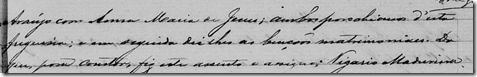 Araújo com Anna Maria de Jesus; ambos parochianos d'esta
freguesia; e em seguida dei-lhes as bençãos matrimoniaes. Do
que, para constar, fiz este assento e assigno; Vigario Madureira.